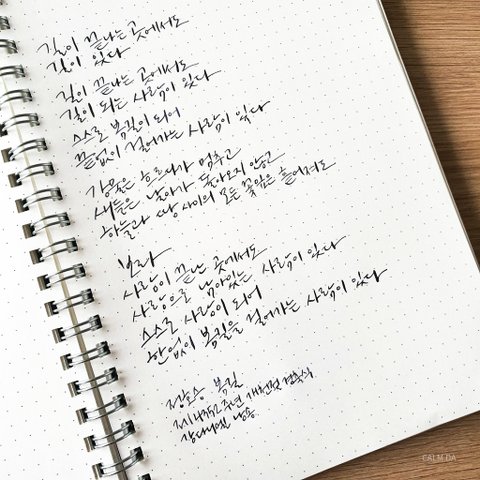 길이 끝나는 곳에서도
길이 있다
길이 끝나는 곳에서도
길이 되는 사람이 있다
스스로 봄길이 되어
끝없이 걸어가는 사람이 있다
강물은 흐르다가 멈추고
새들은 날아가 돌아오지 않고
하늘과 땅 사이의 모든 꽃잎은 흩어져도
보라
사랑이 끝난 곳에서도
사랑으로 남아있는 사람이 있다
스스로 사랑이 되어
한없이 봄길을 걸어가는 사람이 있다
정호승 봄길
제4352주년 개천절 경축식
낭송
CALM.DA